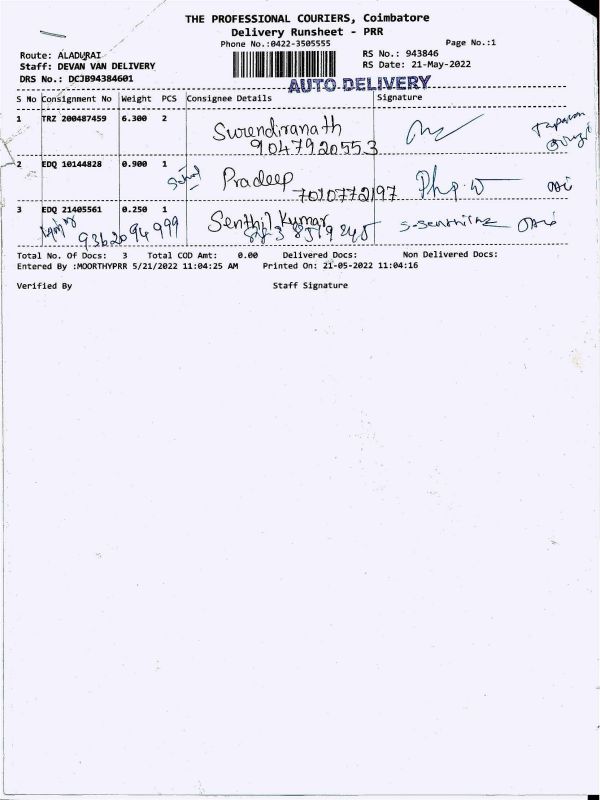 THE PROFESSIONAL COURIERS, Coimbatore
Delivery Runsheet - PRR
Phone No.:0422-3505555
Page No.:1
Route: ALADURAI
RS No.: 943846
Staff: DEVAN VAN DELIVERY
RS Date: 21-May-2022
DRS No.: DCJB94384601
AUTO DELIVERY
S No Consignment No Weight PCS Consignee Details Signature
1 TRZ 200487459 6.300 2 Surendiranath
9047920553
2 EDQ 10144828 0.900 1 Pradeep
7010772197
3 EDQ 21405561 0.250 1 Senthil Kumar
9362094999
Total No. Of Docs: 3 Total COD Amt: 0.00 Delivered Docs: Non Delivered Docs:
Entered By :MOORTHYPRR 5/21/2022 11:04:25 AM Printed On: 21-05-2022 11:04:16
Verified By Staff Signature